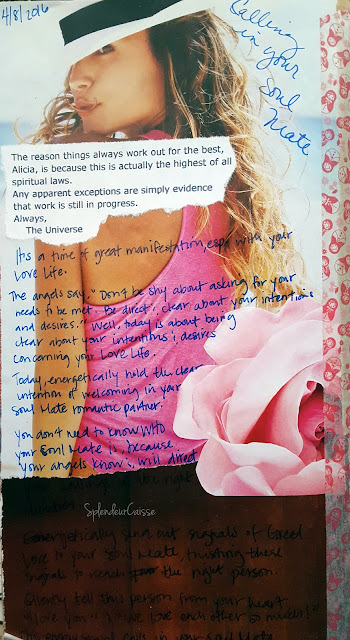 4/8/2016
Calling
in your
Soul
Mate
The reason things always work out for the best,
Alicia, is because this is actually the highest of all
spiritual laws.
Any apparent exceptions are simply evidence
that work is still in progress.
Always,
The Universe
It's a time of great manifestation, esp. with your
Love Life.
The angels say, "Don't be shy about asking for your
needs to be met. Be direct, clear about your intentions
and desires." Well, today is about being
clear about your intentions & desires
concerning your Love Life.
Today, energetically hold the clear
intention of welcoming in your
soul Mate romantic partner.
You don't need to know WHO
your Soul Mate is, because
your angels know & will direct
the right
SplendeurCaisse
Energetically send out signals of
Love to your Soul Mate trusting these
signals to reach the right person.
tell this person from your heart
"I love you" & "we love each other so much!"
in your Soul Mate